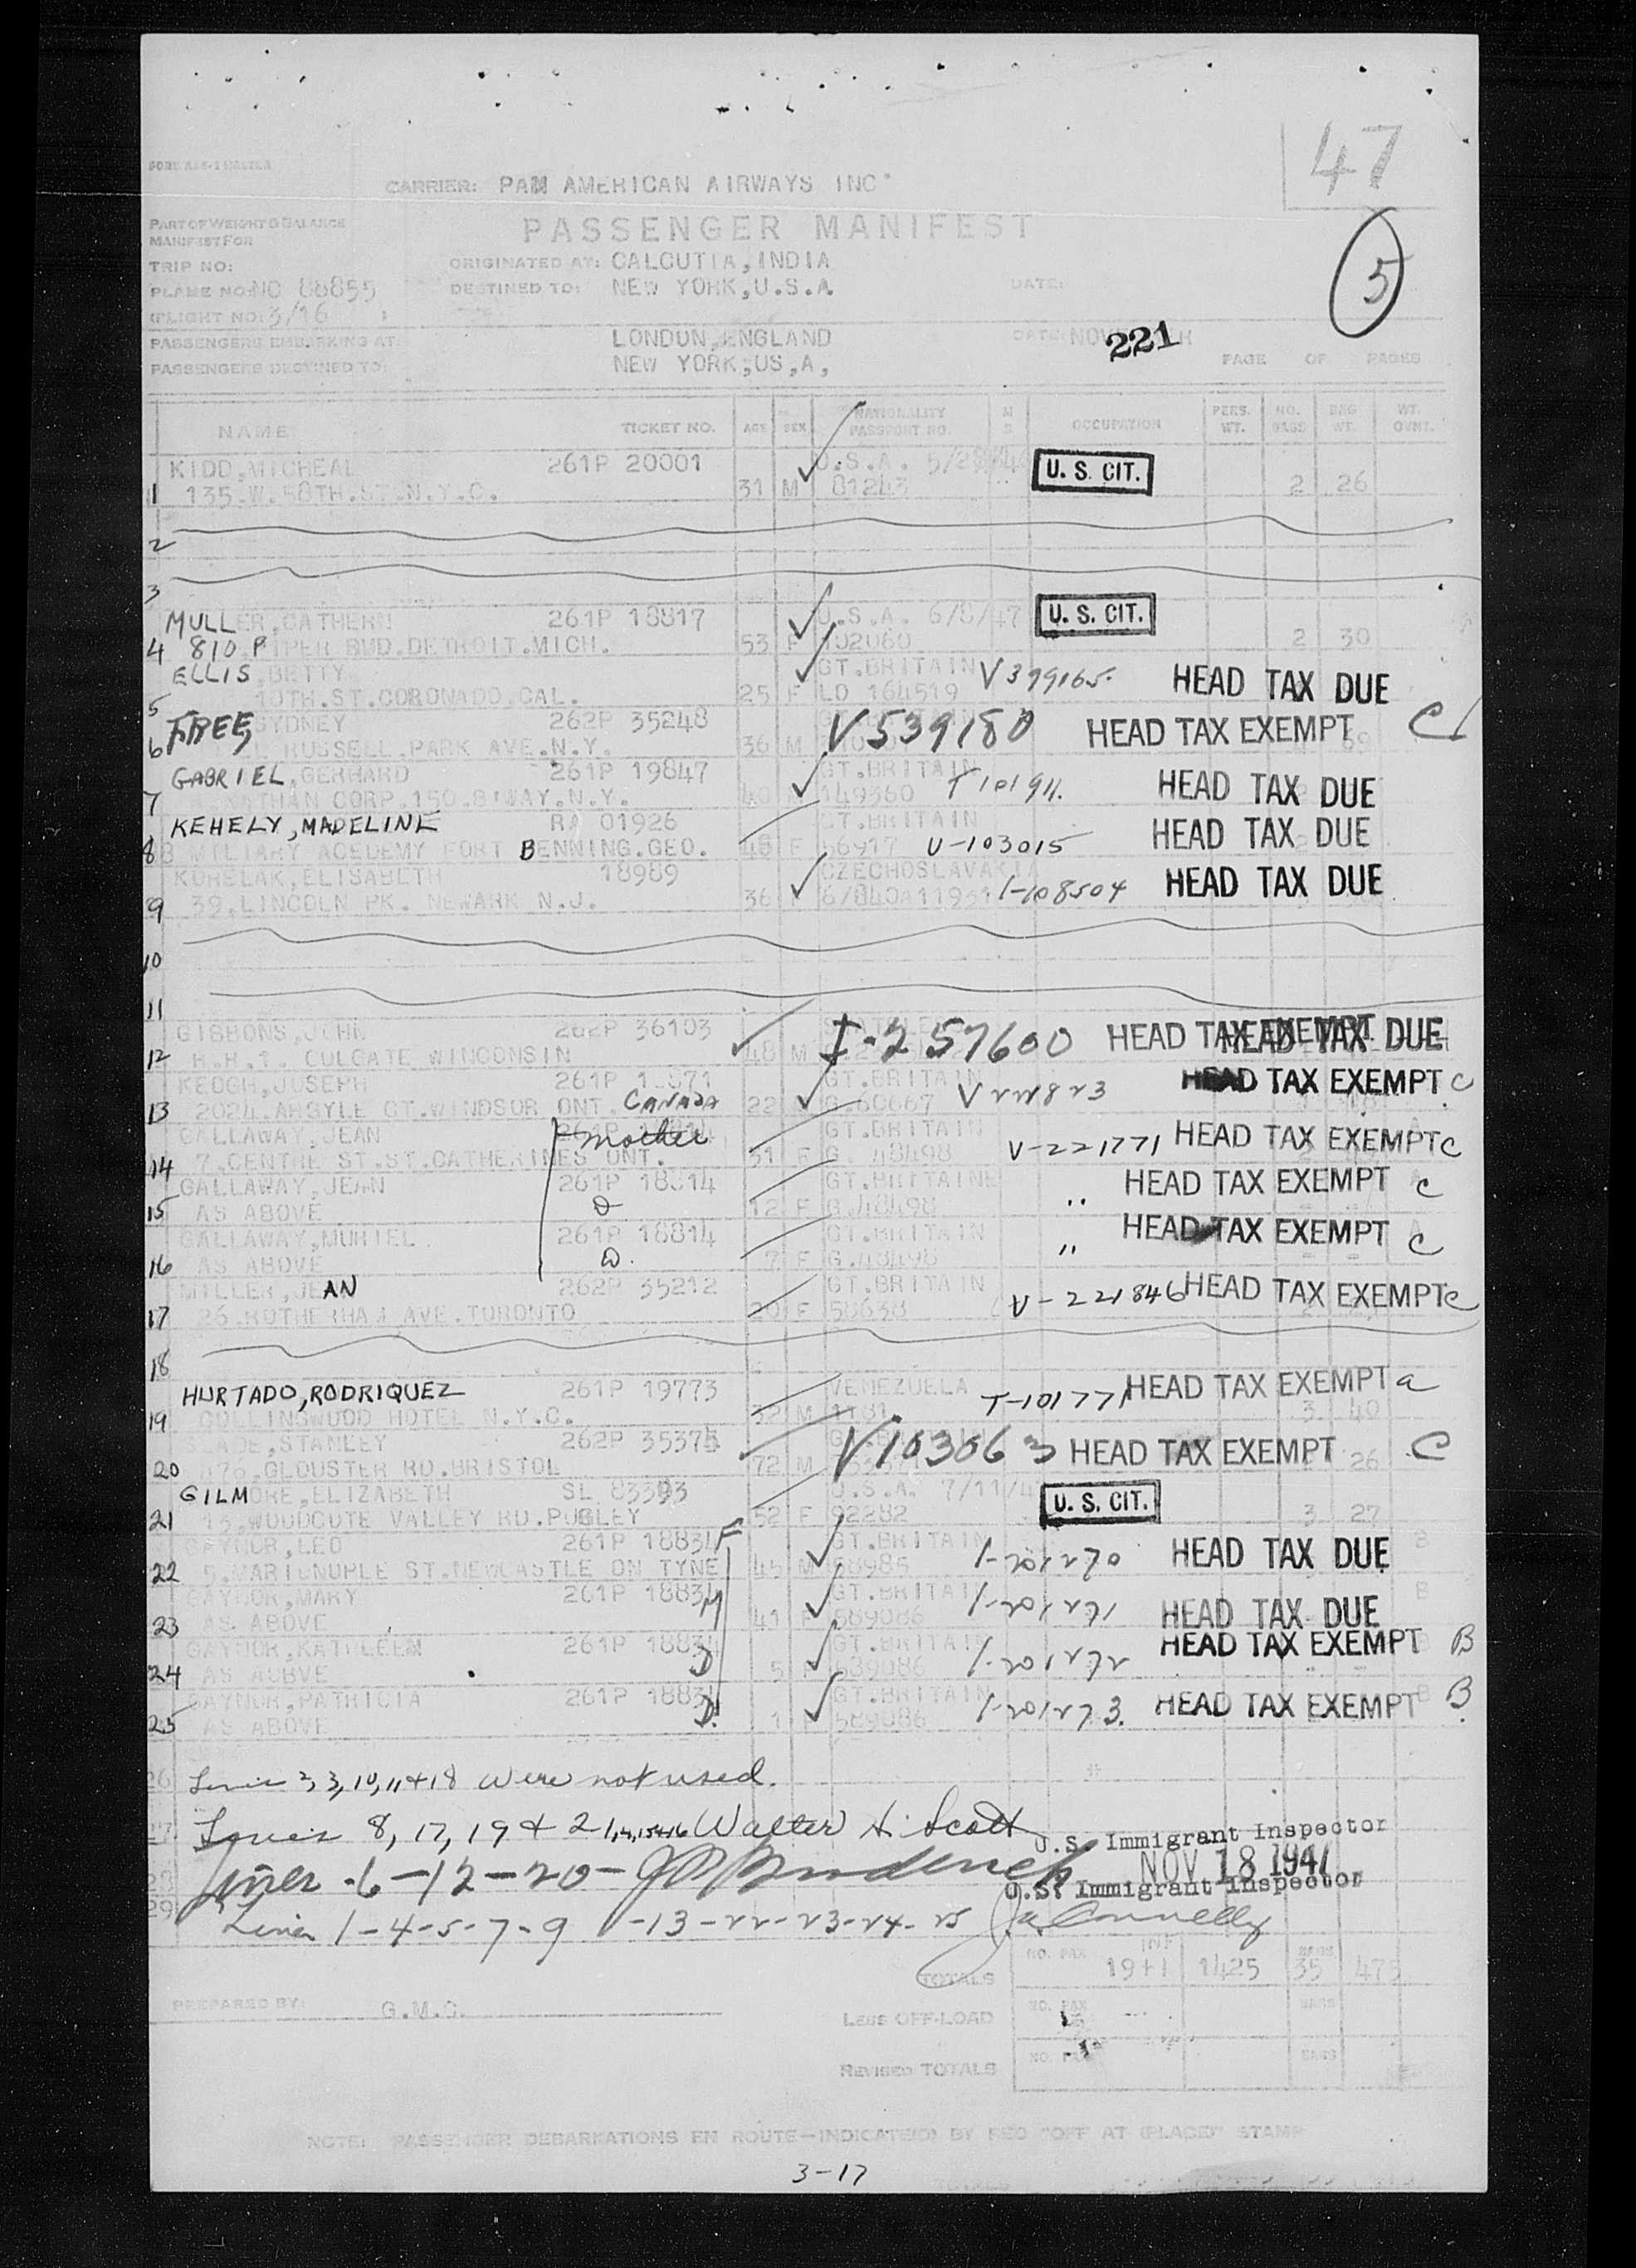 47
CARRIER: PAN AMERICAN AIRWAYS INC
PART OF WEIGHT & BALANCE
MANIFEST FOR
PASSENGER MANIFEST
5
TRIP NO:
ORIGINATED AT: CALCUTTA, INDIA
PLANE NO: NC 88855
DESTINED TO: NEW YORK, U.S.A.
DATE:
FLIGHT NO: 3/16
PASSENGERS EMBARKING AT:
LONDON, ENGLAND
DATE: 221
PASSENGERS DESTINED TO:
NEW YORK, US, A,
PAGE OF PAGES
NAME TICKET NO. AGE SEX NATIONALITY PASSPORT NO. M S OCCUPATION PERS. WT. NO. BAGS BAG WT. WT. OVNT.
KIDD, MICHEAL 261P 20001 U.S.A. U. S. CIT.
1 135.W.58TH.ST.N.Y.C. 31 M 81243 2 26
2
3
MULLER, CATHERN 261P 18817 U.S.A. 6/8/47 U. S. CIT.
4 810 PIPER BUD.DETROIT.MICH. 53 F 102060 2 30
ELLIS, BETTY GT.BRITAIN V399165. HEAD TAX DUE
5 10TH.ST.CORONADO.CAL. 25 F LO 164519
FREE, SYDNEY 262P 35248 V539180 HEAD TAX EXEMPT C1
6 RUSSELL.PARK AVE.N.Y. 36 M
GABRIEL, GERHARD 261P 19847 GT.BRITAIN T101911. HEAD TAX DUE
7 NATHAN CORP.150.B'WAY.N.Y. 40 149360
KEHELY, MADELINE RA 01926 GT.BRITAIN HEAD TAX DUE
8 MILIARY ACEDEMY FORT BENNING.GEO. 48 F 56917 V-103015
KORELAK, ELISABETH 18989 CZECHOSLAVAKIA HEAD TAX DUE
9 39, LINCOLN PK. NEWARK N.J. 36 I-108504
10
11
GIBBONS, JOHN 262P 36103 I-257600 HEAD TAX EXEMPT HEAD TAX DUE
12 R.R.1. COLGATE WINCONSIN 48 M
KEOGH, JOSEPH 261P GT.BRITAIN HEAD TAX EXEMPT C
13 2024.ARGYLE CT.WINDSOR ONT. CANADA 22 G.60667
CALLAWAY, JEAN mother GT.BRITAIN V-221771 HEAD TAX EXEMPT C
14 7.CENTRE ST.ST.CATHERINES ONT. 31 F G. 48498
GALLAWAY, JEAN 261P 18814 GT.BRITAINE HEAD TAX EXEMPT C
15 AS ABOVE D 12 F G.48498 "
GALLAWAY, MURIEL 261P 18814 GT.BRITAIN HEAD TAX EXEMPT C
16 AS ABOVE D. 7 F G.48498 "
MILLER, JEAN 262P 35212 GT.BRITAIN V-221846 HEAD TAX EXEMPT C
17 26.ROTHERHAM AVE.TORONTO 20 F 58638
18
HURTADO, RODRIQUEZ 261P 19773 VENEZUELA T-101771 HEAD TAX EXEMPT a
19 COLLINGWOOD HOTEL N.Y.C. 32 M 1181 3 49
STANLEY 262P 35375 V103063 HEAD TAX EXEMPT C
20 476.GLOUSTER RD.BRISTOL 72 M 26
GILMORE, ELIZABETH SL 83393 U.S.A. U. S. CIT.
21 13.WOODCOTE VALLEY RD.PURLEY 52 F 92282 3 27
GAYNOR, LEO 261P 18834 F GT.BRITAIN I-201270 HEAD TAX DUE
22 5.MARIONOPLE ST.NEWCASTLE ON TYNE 45 M 58985
GAYNOR, MARY 261P 18834 M GT.BRITAIN I-201271 HEAD TAX DUE
23 AS ABOVE 41 F 589086
GAYNOR, KATHLEEN 261P 18834 D GT.BRITAIN I-201272 HEAD TAX EXEMPT B
24 AS ABOVE 5 589086
GAYNOR, PATRICIA 261P 18834 D. GT.BRITAIN I-201273. HEAD TAX EXEMPT B
25 AS ABOVE 1 589086
26 Lines 2, 3, 10, 11 + 18 were not used.
27 Lines 8, 17, 19 + 21, 14, 15 + 16 Walter H. Scott
U.S. Immigrant Inspector
28 Lines - 6 - 12 - 20 -
NOV 18 1947
U.S. Immigrant Inspector
29 Lines 1 - 4 - 5 - 7 - 9 - 13 - 22 - 23 - 24 - 25 Connelly
TOTALS NO. PAX INF 19+1 1425 BAGS 35 475
PREPARED BY: G.M.C.
LESS OFF-LOAD NO. PAX BAGS
REVISED TOTALS NO. PAX BAGS
NOTE: PASSENGER DEBARKATIONS EN ROUTE—INDICATED BY RED "OFF AT (PLACE)" STAMP
3-17